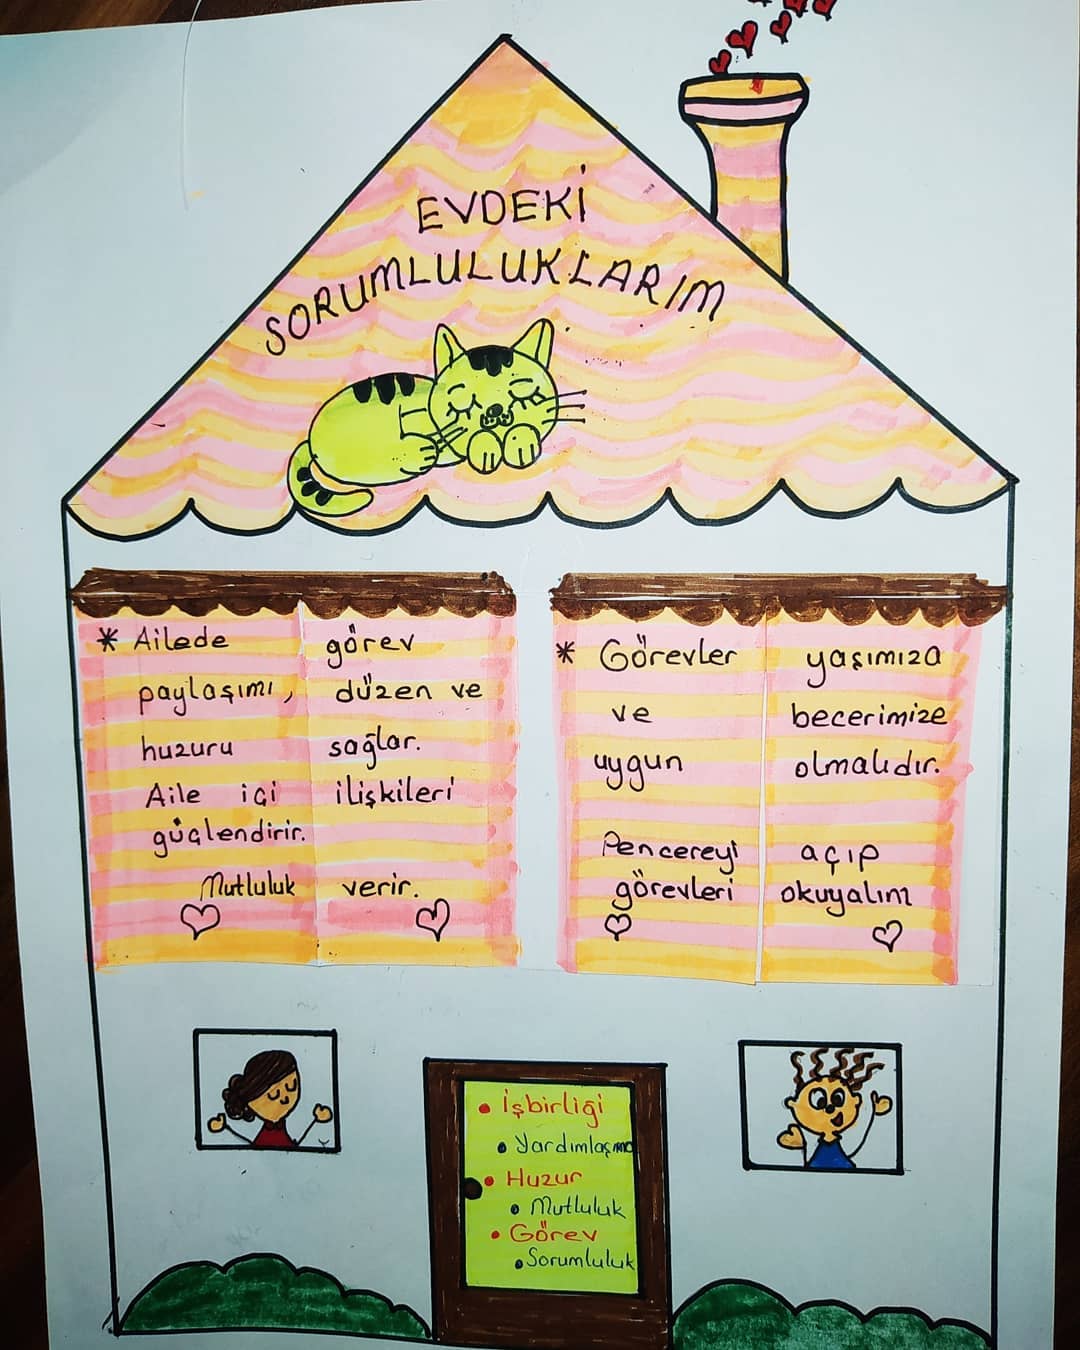 EVDEKİ
SORUMLULUKLARIM
* Ailede görev
paylaşımı, düzen ve
huzuru sağlar.
Aile içi ilişkileri
güçlendirir.
Mutluluk verir.
* Görevler yaşımıza
ve becerimize
uygun olmalıdır.
Pencereyi açıp
görevleri okuyalım
• İşbirliği
• Yardımlaşma
• Huzur
• Mutluluk
• Görev
• Sorumluluk